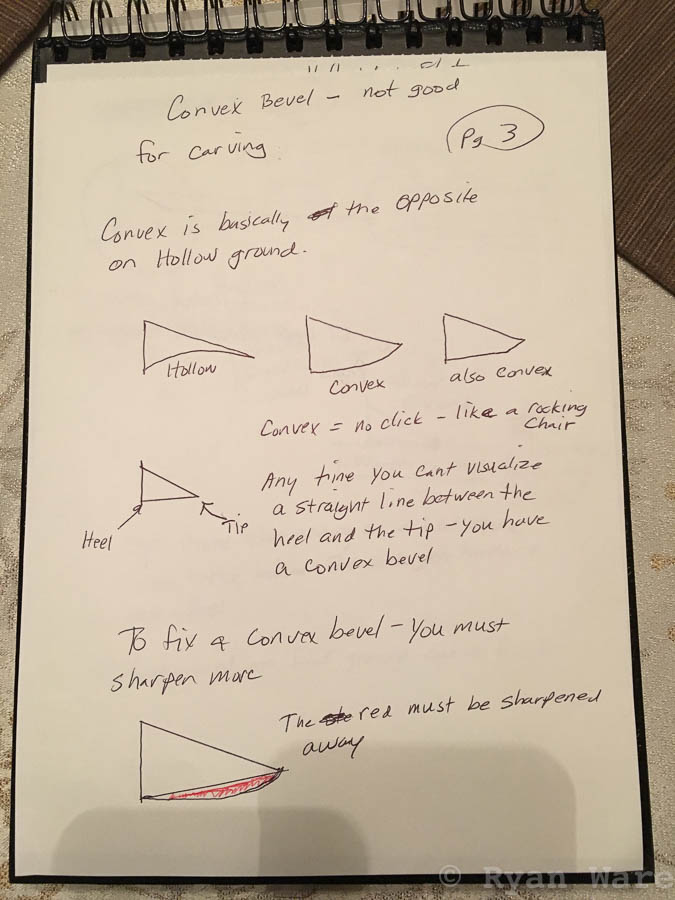 Convex Bevel - not good
for carving.
Pg 3
Convex is basically the opposite
on Hollow ground.
Hollow
Convex
also convex
Convex = no click - like a rocking
chair
Any time you cant visualize
a straight line between the
heel and the tip - you have
a convex bevel
Heel
Tip
To fix a convex bevel - you must
sharpen more
The red must be sharpened
away
© Ryan Ware